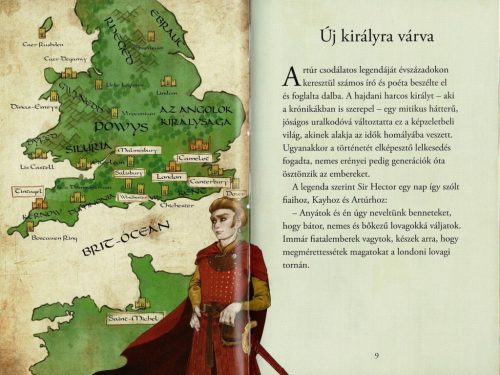 EBRAUK
RHEGED
Caer Rueben
Caer Degamy
GWYNEDD
Dinas-Emreys
Viroconium
AZ ANGOLOK
KIRÁLYSÁGA
POWYS
DYFED
SILURIA
Malmesbury
Camelot
Lis Castell
Caerleon
Salsbury
London
Canterbury
Tintagel
Winchester
KENT
Dover
KERNOW
DUMNONIA
Chichester
Boscawen Ring
BRIT-ÓCEÁN
Saint-Michel
Új királyra várva
Artúr csodálatos legendáját évszázadokon
keresztül számos író és poéta beszélte el
és foglalta dalba. A hajdani harcos királyt – aki
a krónikákban is szerepel – egy mitikus hátterű,
jóságos uralkodóvá változtatta ez a képzeletbeli
világ, akinek alakja az idők homályába veszett.
Ugyanakkor a történetét elképesztő lelkesedés
fogadta, nemes erényei pedig generációk óta
ösztönzik az embereket.
A legenda szerint Sir Hector egy nap így szólt
fiaihoz, Kayhoz és Artúrhoz:
– Anyátok és én úgy neveltünk benneteket,
hogy bátor, nemes és bőkezű lovagokká váljatok.
Immár fiatalemberek vagytok, készek arra, hogy
megmérettessétek magatokat a londoni lovagi
tornán.
9